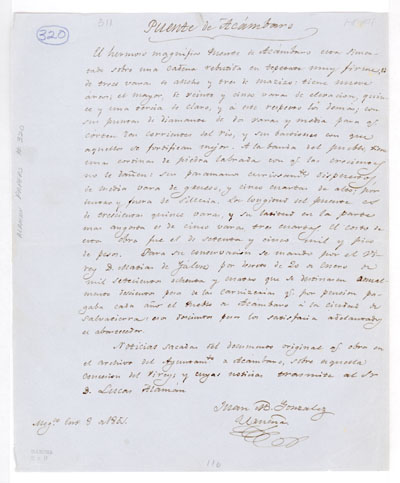 320
511
Puente de Acámbaro
El hermoso magnifico Puente de Acámbaro está cimen-
tado sobre una cadena rebutida en
de trece varas de ancho y tres de macizo: tiene nueve
arcos; el mayor, de veinte y cinco varas de elevacion, quin-
ce y una tercia de claro, y a este respecto los demas, con
sus puntas de diamante de dos varas y media para q.
corten las corrientes del rio, y sus bastiones con que
aquellos se fortifican mejor. A la banda del pueblo tiene
una cortina de piedra labrada con q. las crecientes
no lo dañen: su paramano
de media vara de grueso, y cinco cuartas de alto por
dentro y fuera de silleria. La longitud del puente es
de trescientas quince varas, y su latitud en la parte
mas angosta es de cinco varas tres cuartas. El costo de
esta obra fue el de setenta y cinco mil y pico
de pesos. Para su conservacion se mandó por el Vi-
rey D. Matias de Galvez por decreto de 20 de Enero de
mil setecientos ochenta y cuatro que se destinasen anual-
mente doscientos pesos de la carniceria q. por pension pa-
gaba cada año el Pueblo de Acámbaro a la ciudad de
Salvatierra: esos doscientos pesos los satisfacia adelantados
el abastecedor.
Noticias sacadas del documento original q. obra en
el archivo del Ayuntam.to de Acámbaro, sobre aquella
concesion del Virey, y cuyas noticias trasmite al Sr.
D. Lucas Alaman
Juan B. Gonzalez
Urueña
116